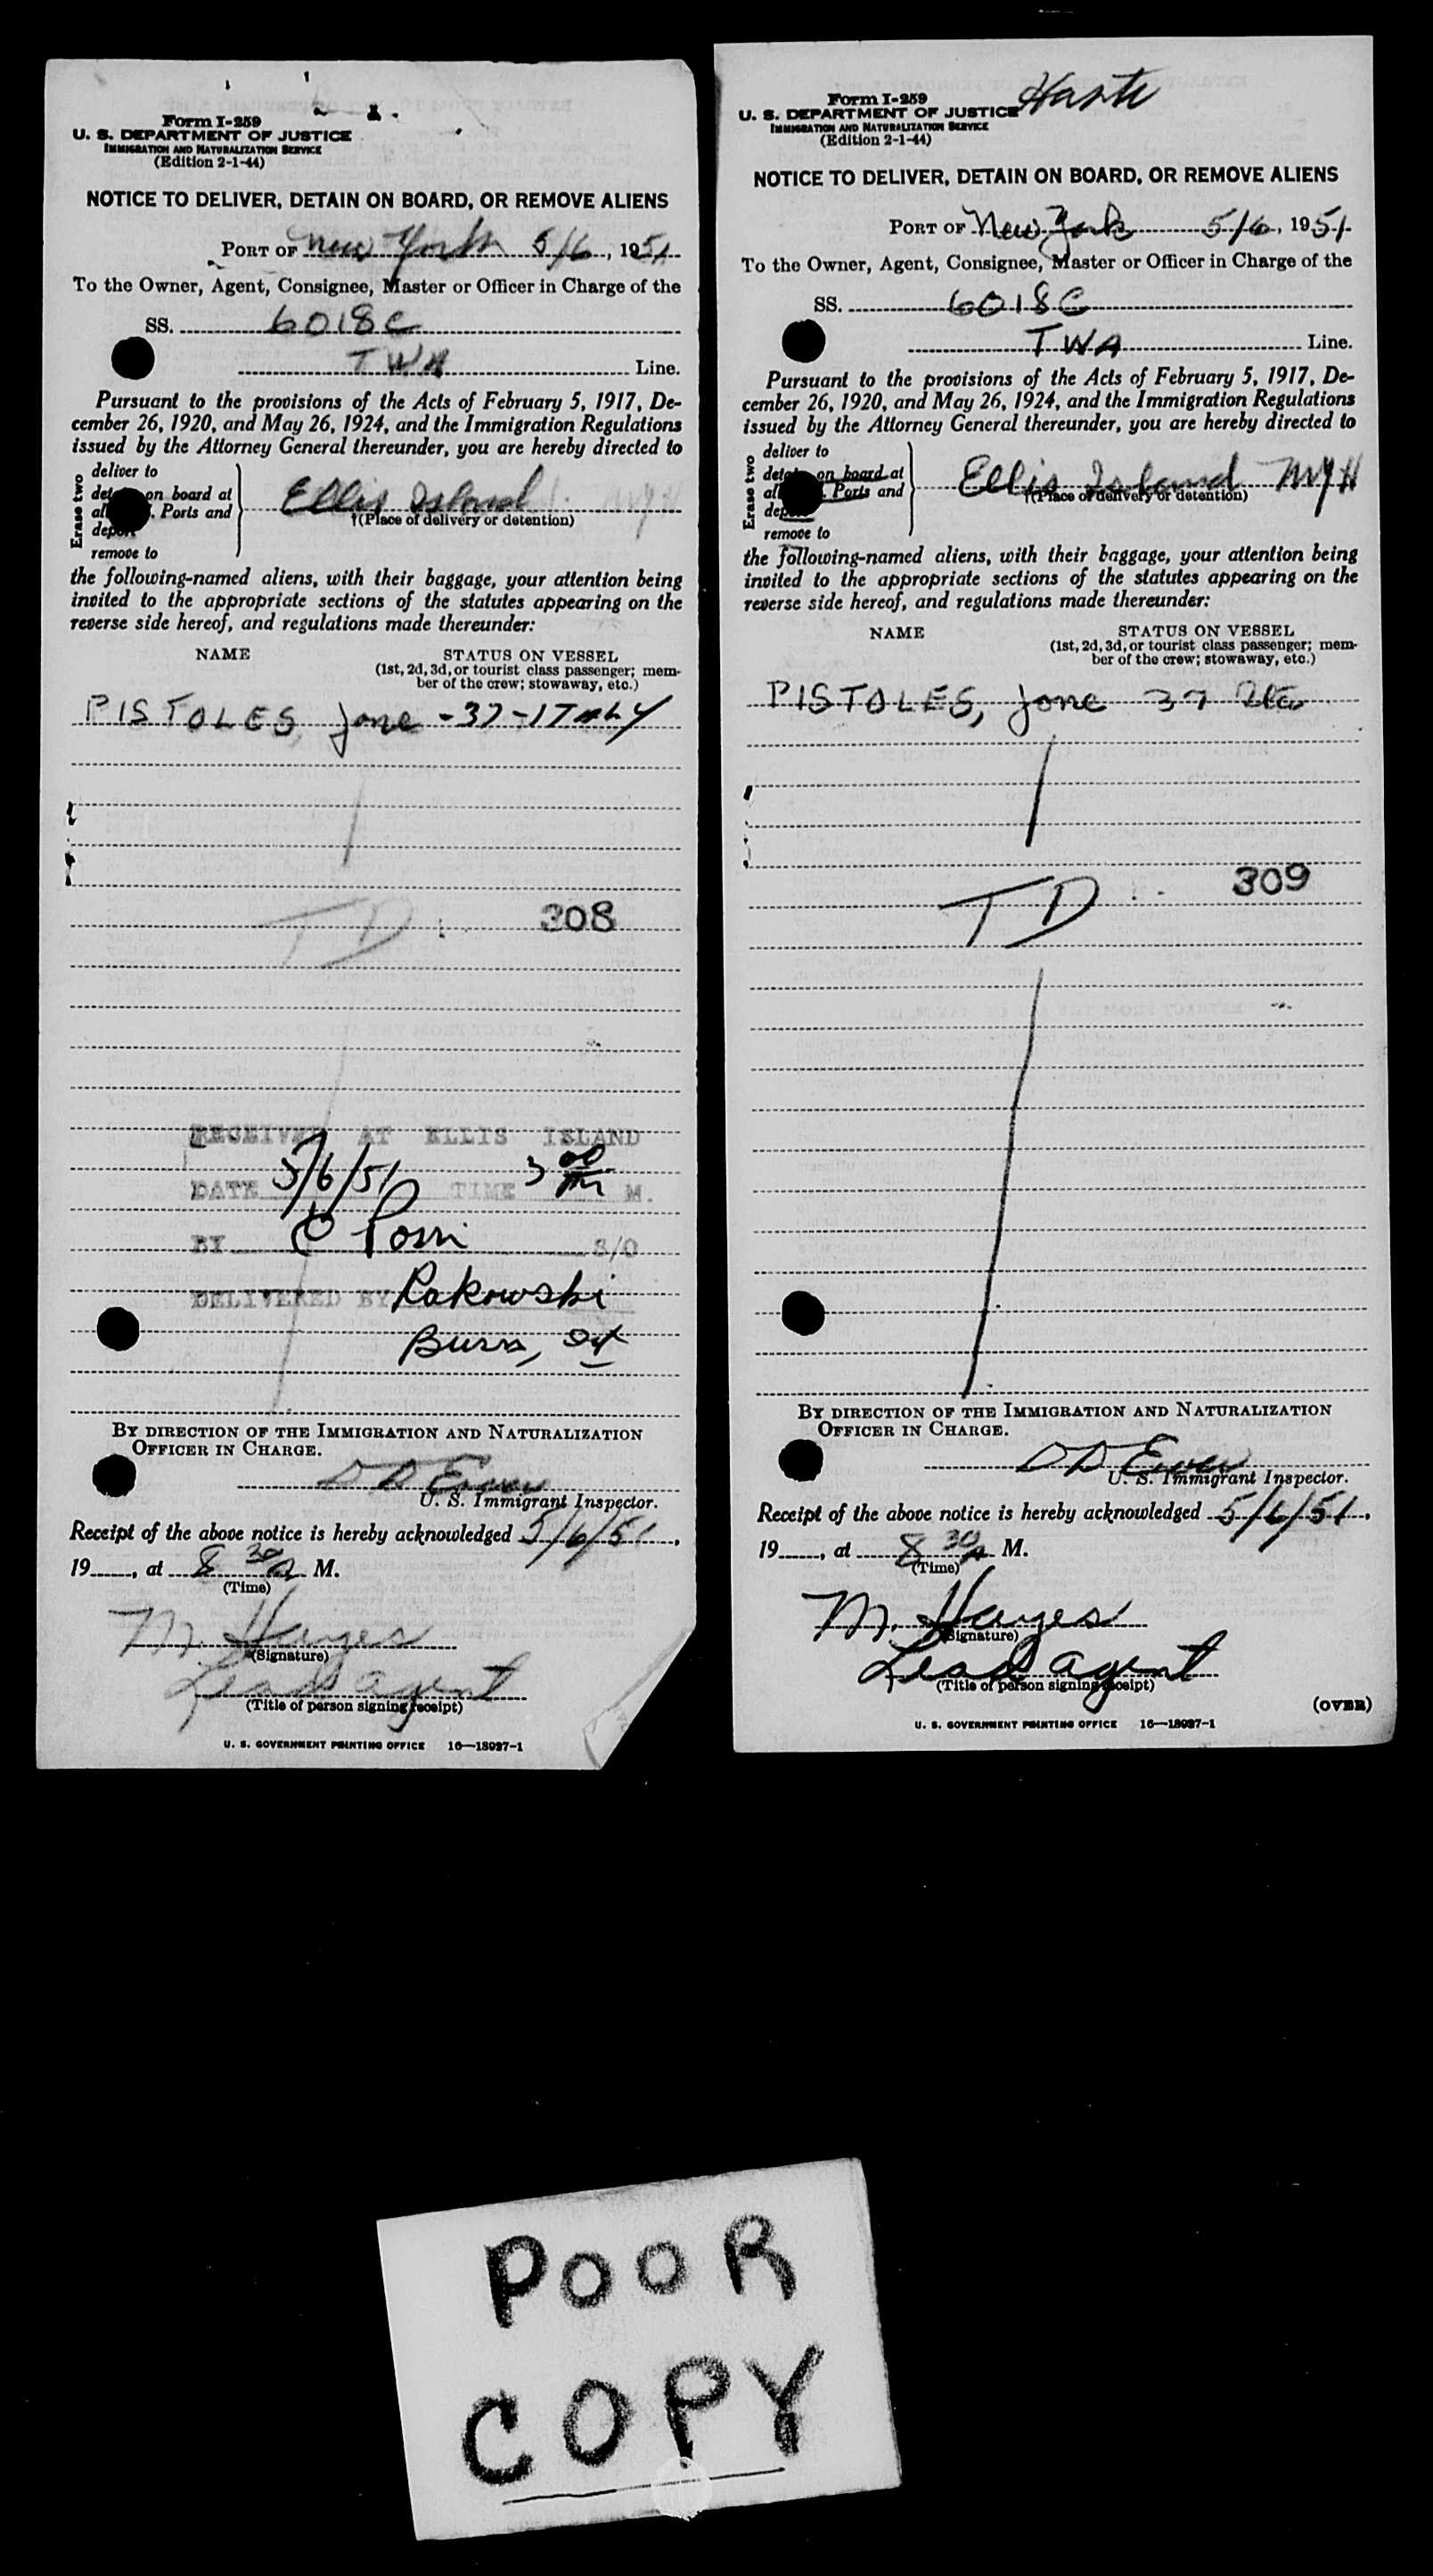 Form I-259
U. S. DEPARTMENT OF JUSTICE
IMMIGRATION AND NATURALIZATION SERVICE
(Edition 2-1-44)
NOTICE TO DELIVER, DETAIN ON BOARD, OR REMOVE ALIENS
PORT OF New York 5/6, 1951
To the Owner, Agent, Consignee, Master or Officer in Charge of the
SS. 6018C
TWA Line.
Pursuant to the provisions of the Acts of February 5, 1917, De-
cember 26, 1920, and May 26, 1924, and the Immigration Regulations
issued by the Attorney General thereunder, you are hereby directed to
Erase two
deliver to
on board at
Ports and
remove to
Ellis Island
†(Place of delivery or detention)
the following-named aliens, with their baggage, your attention being
invited to the appropriate sections of the statutes appearing on the
reverse side hereof, and regulations made thereunder:
NAME STATUS ON VESSEL
(1st, 2d, 3d, or tourist class passenger; mem-
ber of the crew; stowaway, etc.)
PISTOLES, Jone -37-ITALY
TD 308
RECEIVED AT ELLIS ISLAND
DATE 5/6/51 TIME 3 00 M.
BY S/O
DELIVERED BY Rakowski
Burns,
BY DIRECTION OF THE IMMIGRATION AND NATURALIZATION
OFFICER IN CHARGE.
U. S. Immigrant Inspector.
Receipt of the above notice is hereby acknowledged 5/6/51,
19___, at 8 30 A M.
(Time)
M. Hayes
(Signature)
Lead agent
(Title of person signing receipt)
U. S. GOVERNMENT PRINTING OFFICE 16—18987-1
Form I-259
U. S. DEPARTMENT OF JUSTICE
IMMIGRATION AND NATURALIZATION SERVICE
(Edition 2-1-44)
NOTICE TO DELIVER, DETAIN ON BOARD, OR REMOVE ALIENS
PORT OF New York 5/6, 1951
To the Owner, Agent, Consignee, Master or Officer in Charge of the
SS. 6018C
TWA Line.
Pursuant to the provisions of the Acts of February 5, 1917, De-
cember 26, 1920, and May 26, 1924, and the Immigration Regulations
issued by the Attorney General thereunder, you are hereby directed to
Erase two
deliver to
on board at
Ports and
remove to
Ellis Island NYH
†(Place of delivery or detention)
the following-named aliens, with their baggage, your attention being
invited to the appropriate sections of the statutes appearing on the
reverse side hereof, and regulations made thereunder:
NAME STATUS ON VESSEL
(1st, 2d, 3d, or tourist class passenger; mem-
ber of the crew; stowaway, etc.)
PISTOLES, Jone 37
309
TD
BY DIRECTION OF THE IMMIGRATION AND NATURALIZATION
OFFICER IN CHARGE.
U. S. Immigrant Inspector.
Receipt of the above notice is hereby acknowledged 5/6/51,
19___, at 8 30 A M.
(Time)
M. Hayes
(Signature)
Lead agent
(Title of person signing receipt)
(OVER)
U. S. GOVERNMENT PRINTING OFFICE 16—18987-1
POOR
COPY